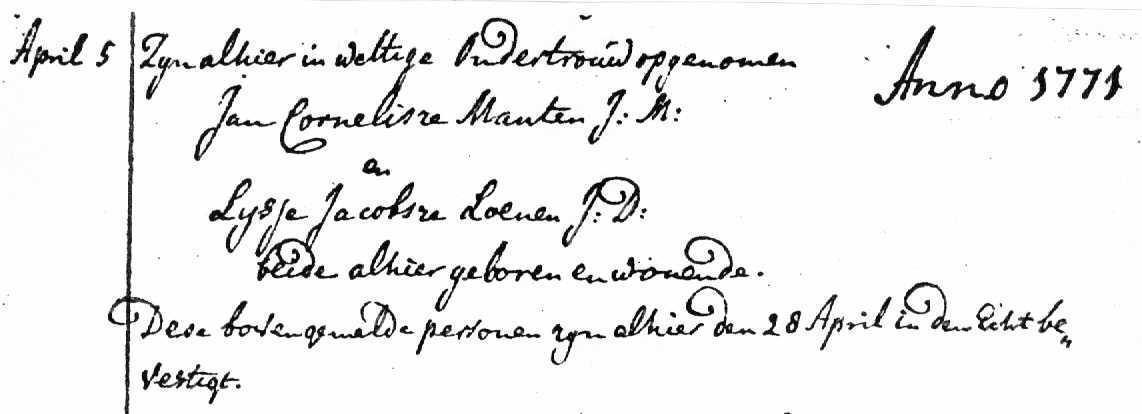 April 5 Zyn alhier in wettige Ondertrouw opgenomen
Anno 1771
Jan Cornelisze Manten J: M:
en
Lysje Jacobsze Loenen J: D:
beide alhier geboren en wonende.
Dese bovengemelde personen zyn alhier den 28 April in den Echt be„
vestigt.